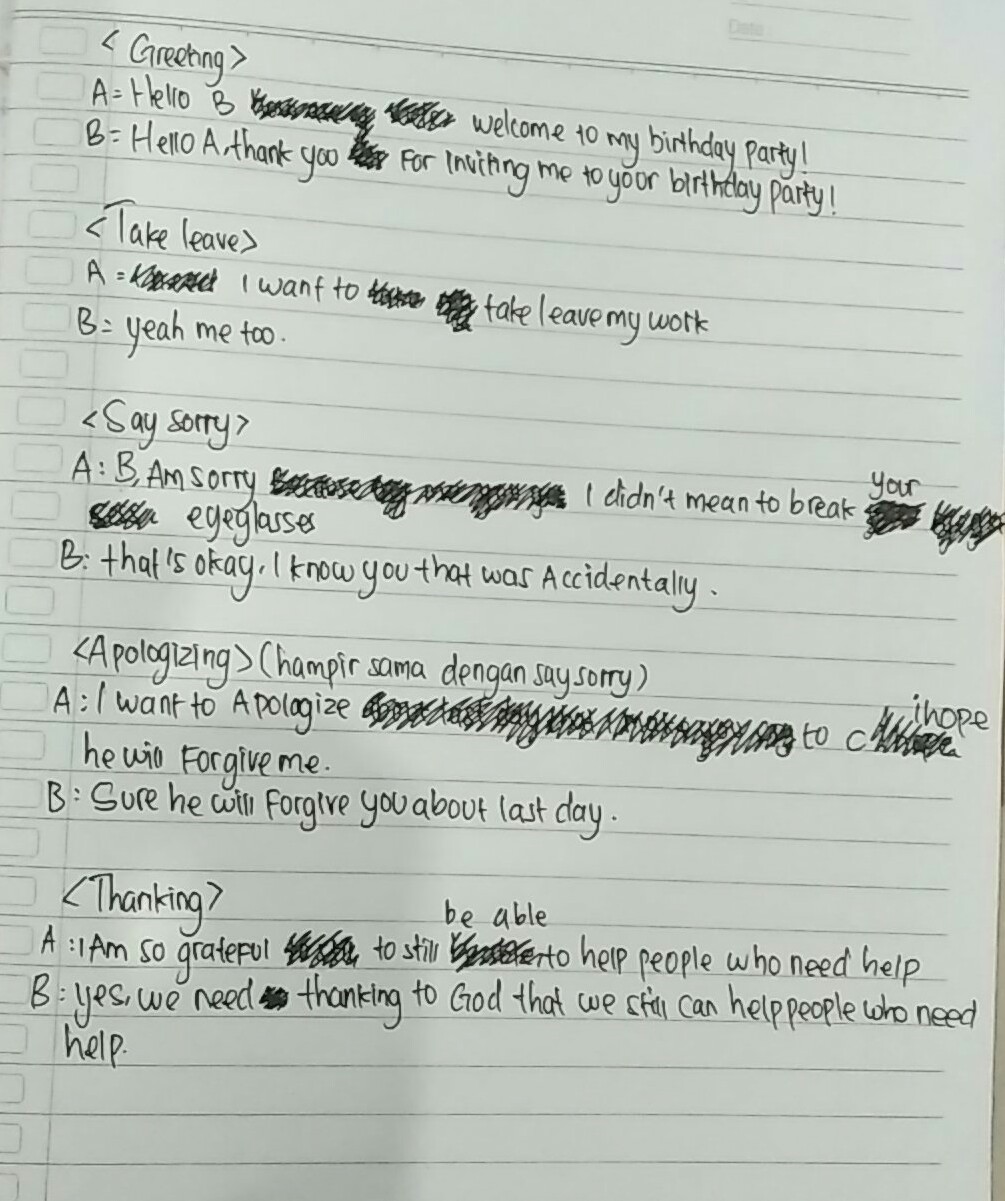 Date
< Greeting >
A = Hello B welcome to my birthday party!
B = Hello A, thank you For inviting me to your birthday party!
<Take leave>
A = I want to take leave my work
B = yeah me too.
<Say sorry>
A : B, Am sorry I didn't mean to break your
eyeglasses
B : that's okay, I know you that was Accidentally.
<Apologizing> (hampir sama dengan say sorry)
A : I want to Apologize to C i hope
he will Forgive me.
B : Sure he will Forgive you about last day.
<Thanking>
A : I Am so grateful to still be able to help people who need help
B : yes, we need thanking to God that we still can help people who need
help.